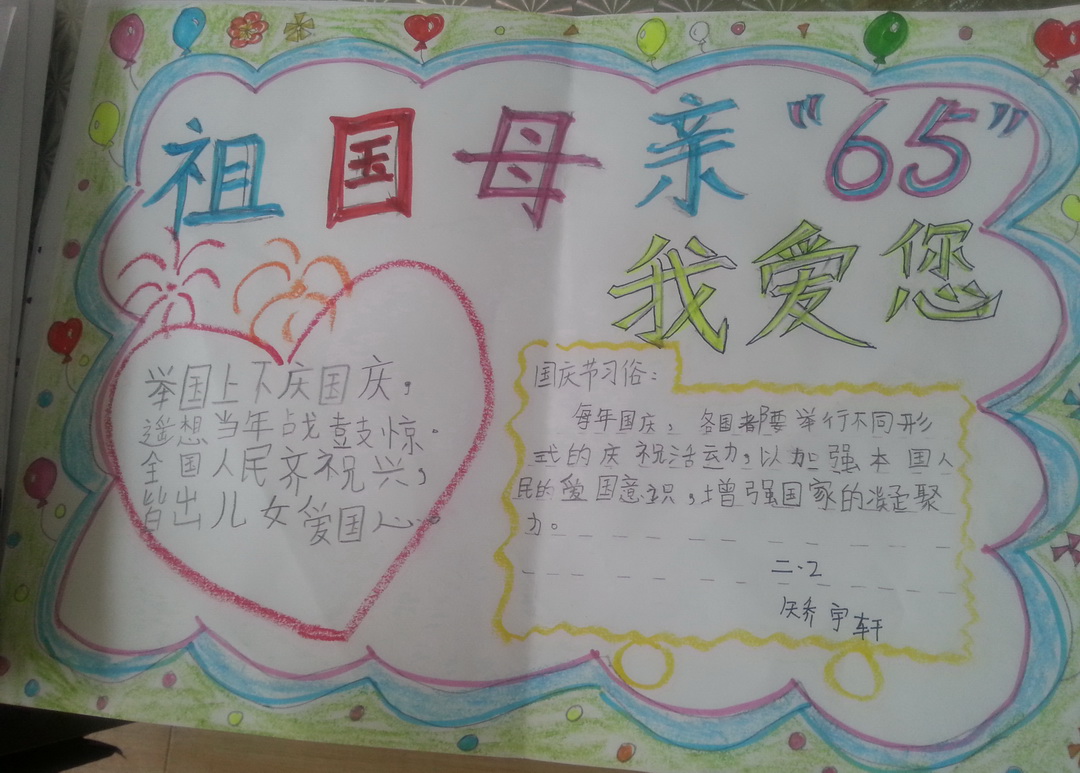 祖国母亲“65”
我爱您
举国上下庆国庆，
遥想当年战鼓惊。
全国人民齐祝兴，
皆出儿女爱国心。
国庆节习俗：
每年国庆，各国都要举行不同形
式的庆祝活动，以加强本国人
民的爱国意识，增强国家的凝聚
力。
二·2
宇轩